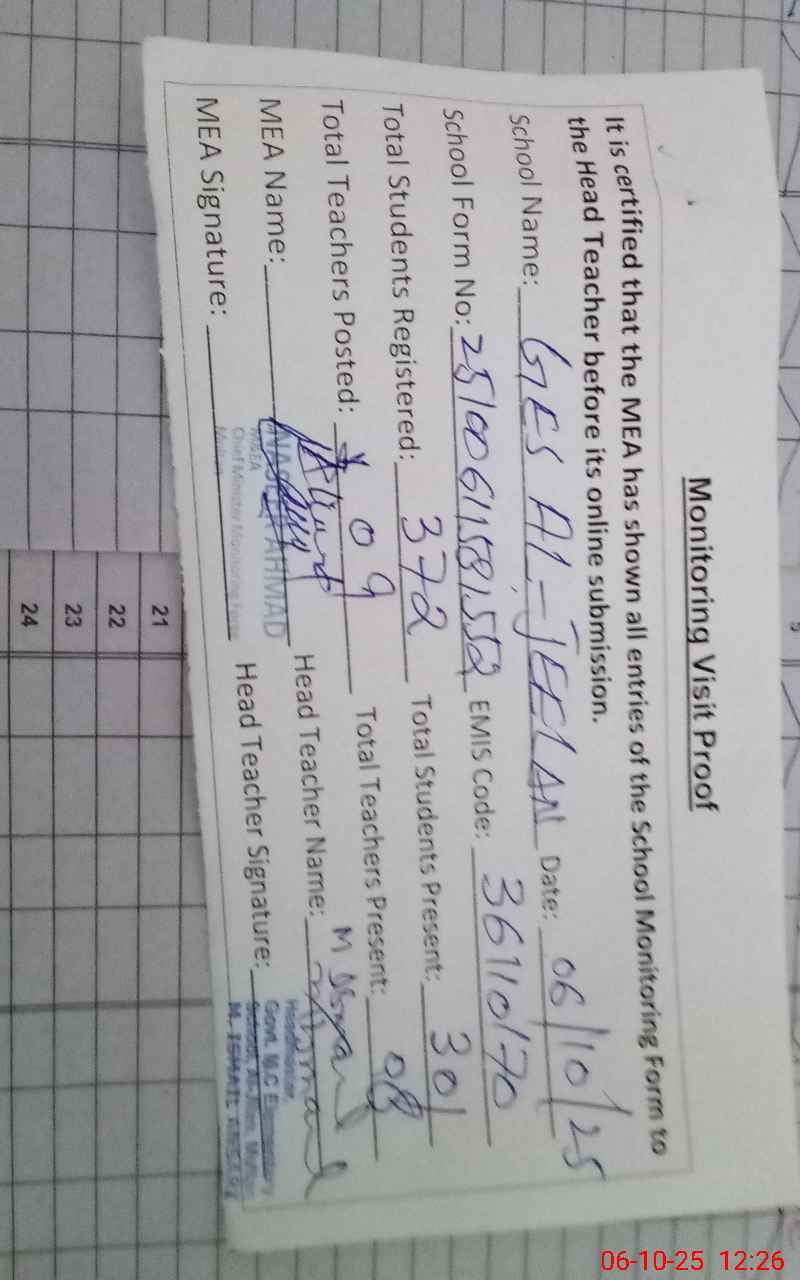 Monitoring Visit Proof
It is certified that the MEA has shown all entries of the School Monitoring Form to
the Head Teacher before its online submission.
School Name: GES Al-JEELAN Date: 06/10/25
School Form No: EMIS Code: 36110170
Total Students Registered: 372 Total Students Present: 301
Total Teachers Posted: 09 Total Teachers Present: 08
MEA Name: AHMAD Head Teacher Name: M
MEA Signature: Head Teacher Signature:
MEA
Chief Minister Monitoring
Headmaster
Govt. M.C Elementary
School,
M. ISMAIL
21
22
23
24
06-10-25 12:26